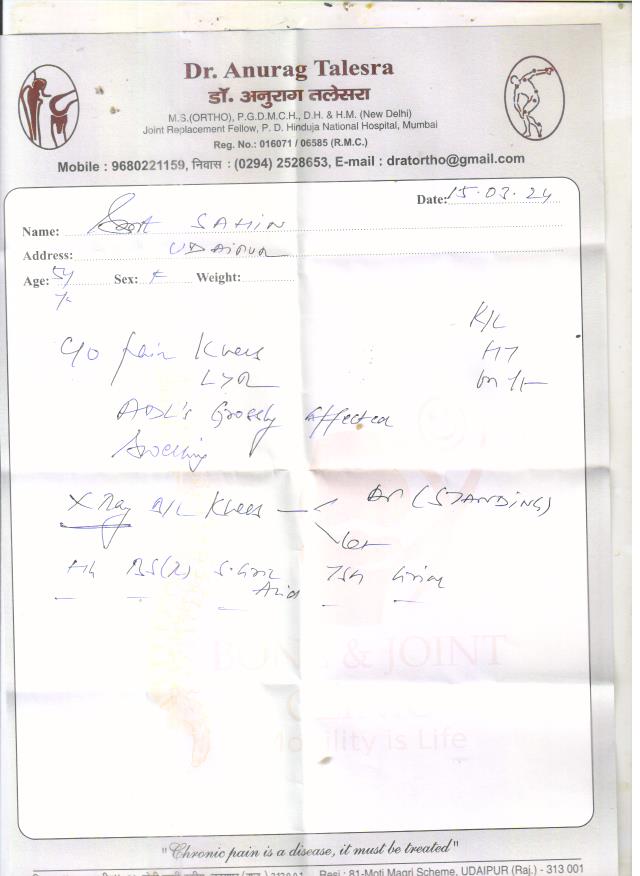 Dr. Anurag Talesra
डॉ. अनुराग तलेसरा
M.S.(ORTHO), P.G.D.M.C.H., D.H. & H.M. (New Delhi)
Joint Replacement Fellow, P. D. Hinduja National Hospital, Mumbai
Reg. No.: 016071 / 06585 (R.M.C.)
Mobile : 9680221159, निवास : (0294) 2528653, E-mail : dratortho@gmail.com
Date: 15.03.24
Name: SAHIN
Address: UDAIPUR
Age: Sex: F Weight:
K/C
HT
on
C/o Pain Knees
L>R
ADL's Grossly affected
Swelling
X Ray B/L Knees AP (STANDING)
Lat
BS(R) S. Uric TSH Urine
Acid
BONE & JOINT
Mobility is Life
"Chronic pain is a disease, it must be treated"
Resi : 81-Moti Magri Scheme, UDAIPUR (Raj.) - 313 001